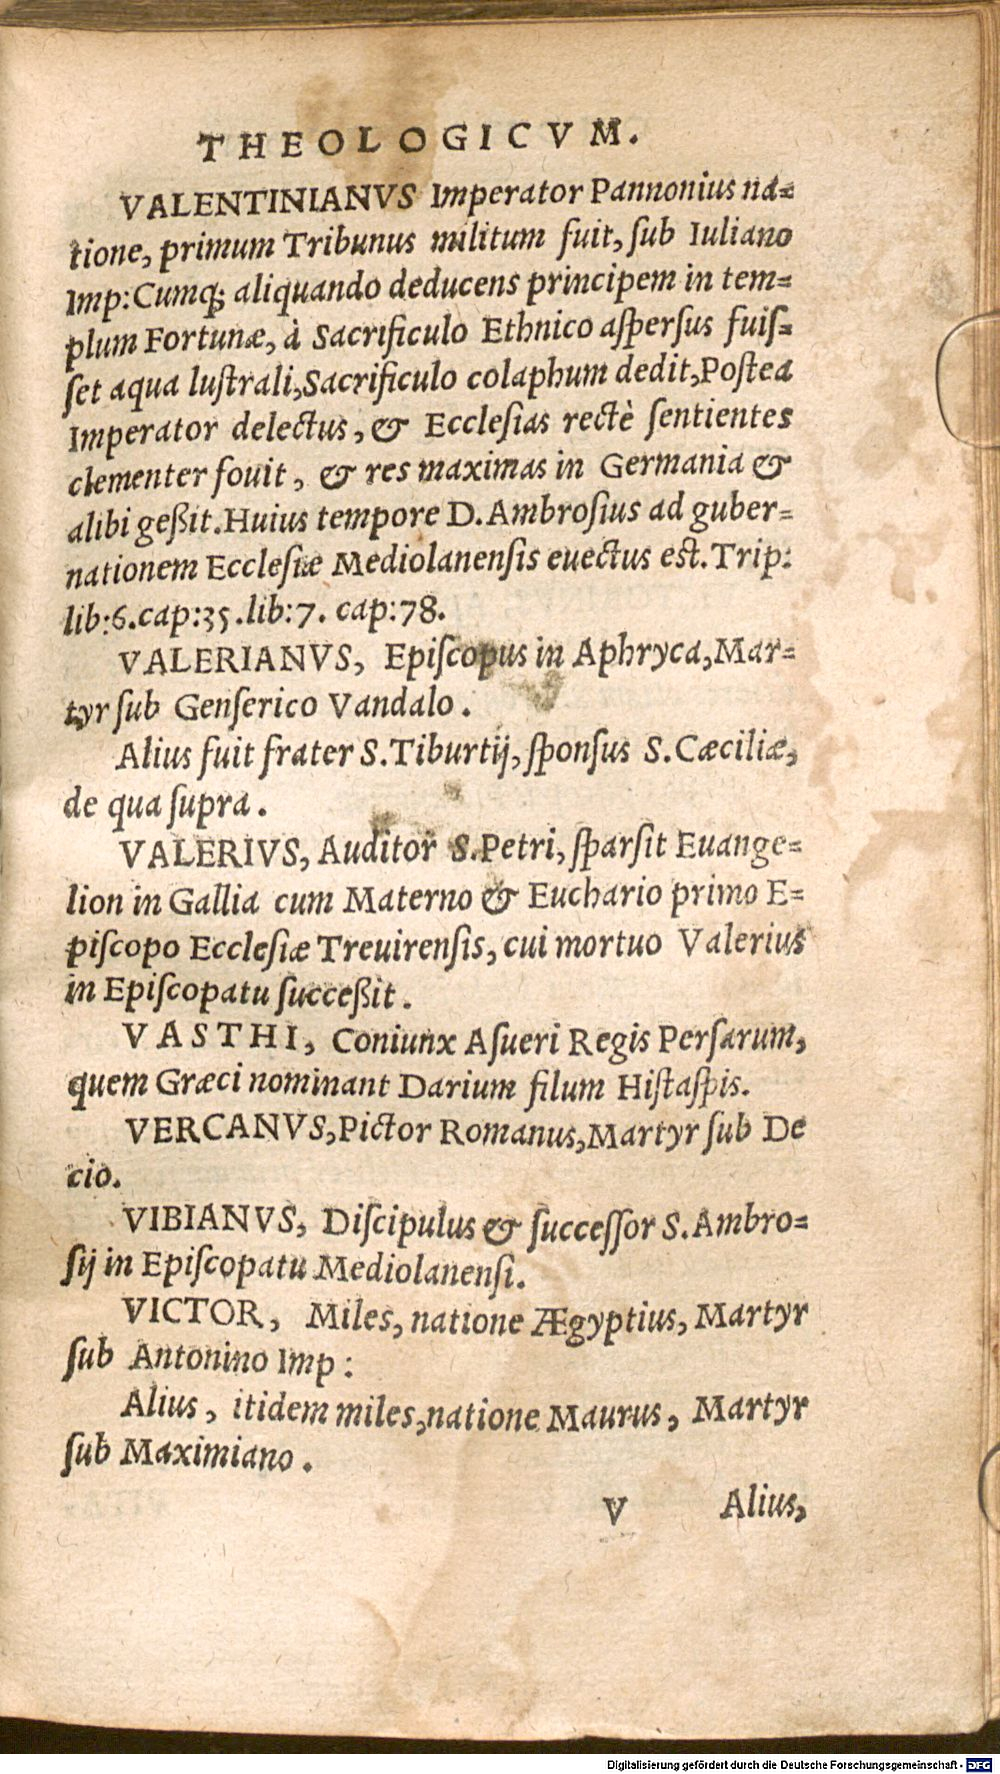 THEOLOGICVM.
VALENTINIANVS Imperator Pannonius na=
tione, primum Tribunus militum fuit, ſub Iuliano
Imp: Cumq; aliquando deducens principem in tem=
plum Fortunæ, à Sacrificulo Ethnico aſperſus fuiſ=
ſet aqua luſtrali, Sacrificulo colaphum dedit, Poſtea
Imperator delectus, & Eccleſias rectè ſentientes
clementer fouit, & res maximas in Germania &
alibi geßit. Huius tempore D. Ambroſius ad guber=
nationem Eccleſiæ Mediolanenſis euectus eſt. Trip:
lib: 6. cap: 35. lib: 7. cap: 78.
VALERIANVS, Epiſcopus in Aphryca, Mar=
tyr ſub Genſerico Vandalo.
Alius fuit frater S. Tiburtij, ſponſus S. Cæciliæ,
de qua ſupra.
VALERIVS, Auditor S. Petri, ſparſit Euange=
lion in Gallia cum Materno & Euchario primo E=
piſcopo Eccleſiæ Treuirenſis, cui mortuo Valerius
in Epiſcopatu ſucceßit.
VASTHI, Coniunx Aſueri Regis Perſarum,
quem Græci nominant Darium filum Hiſtaſpis.
VERCANVS, Pictor Romanus, Martyr ſub De
cio.
VIBIANVS, Diſcipulus & ſucceſſor S. Ambro=
ſij in Epiſcopatu Mediolanenſi.
VICTOR, Miles, natione Ægyptius, Martyr
ſub Antonino Imp:
Alius, itidem miles, natione Maurus, Martyr
ſub Maximiano.
V Alius,
Digitalisierung gefördert durch die Deutsche Forschungsgemeinschaft - DFG